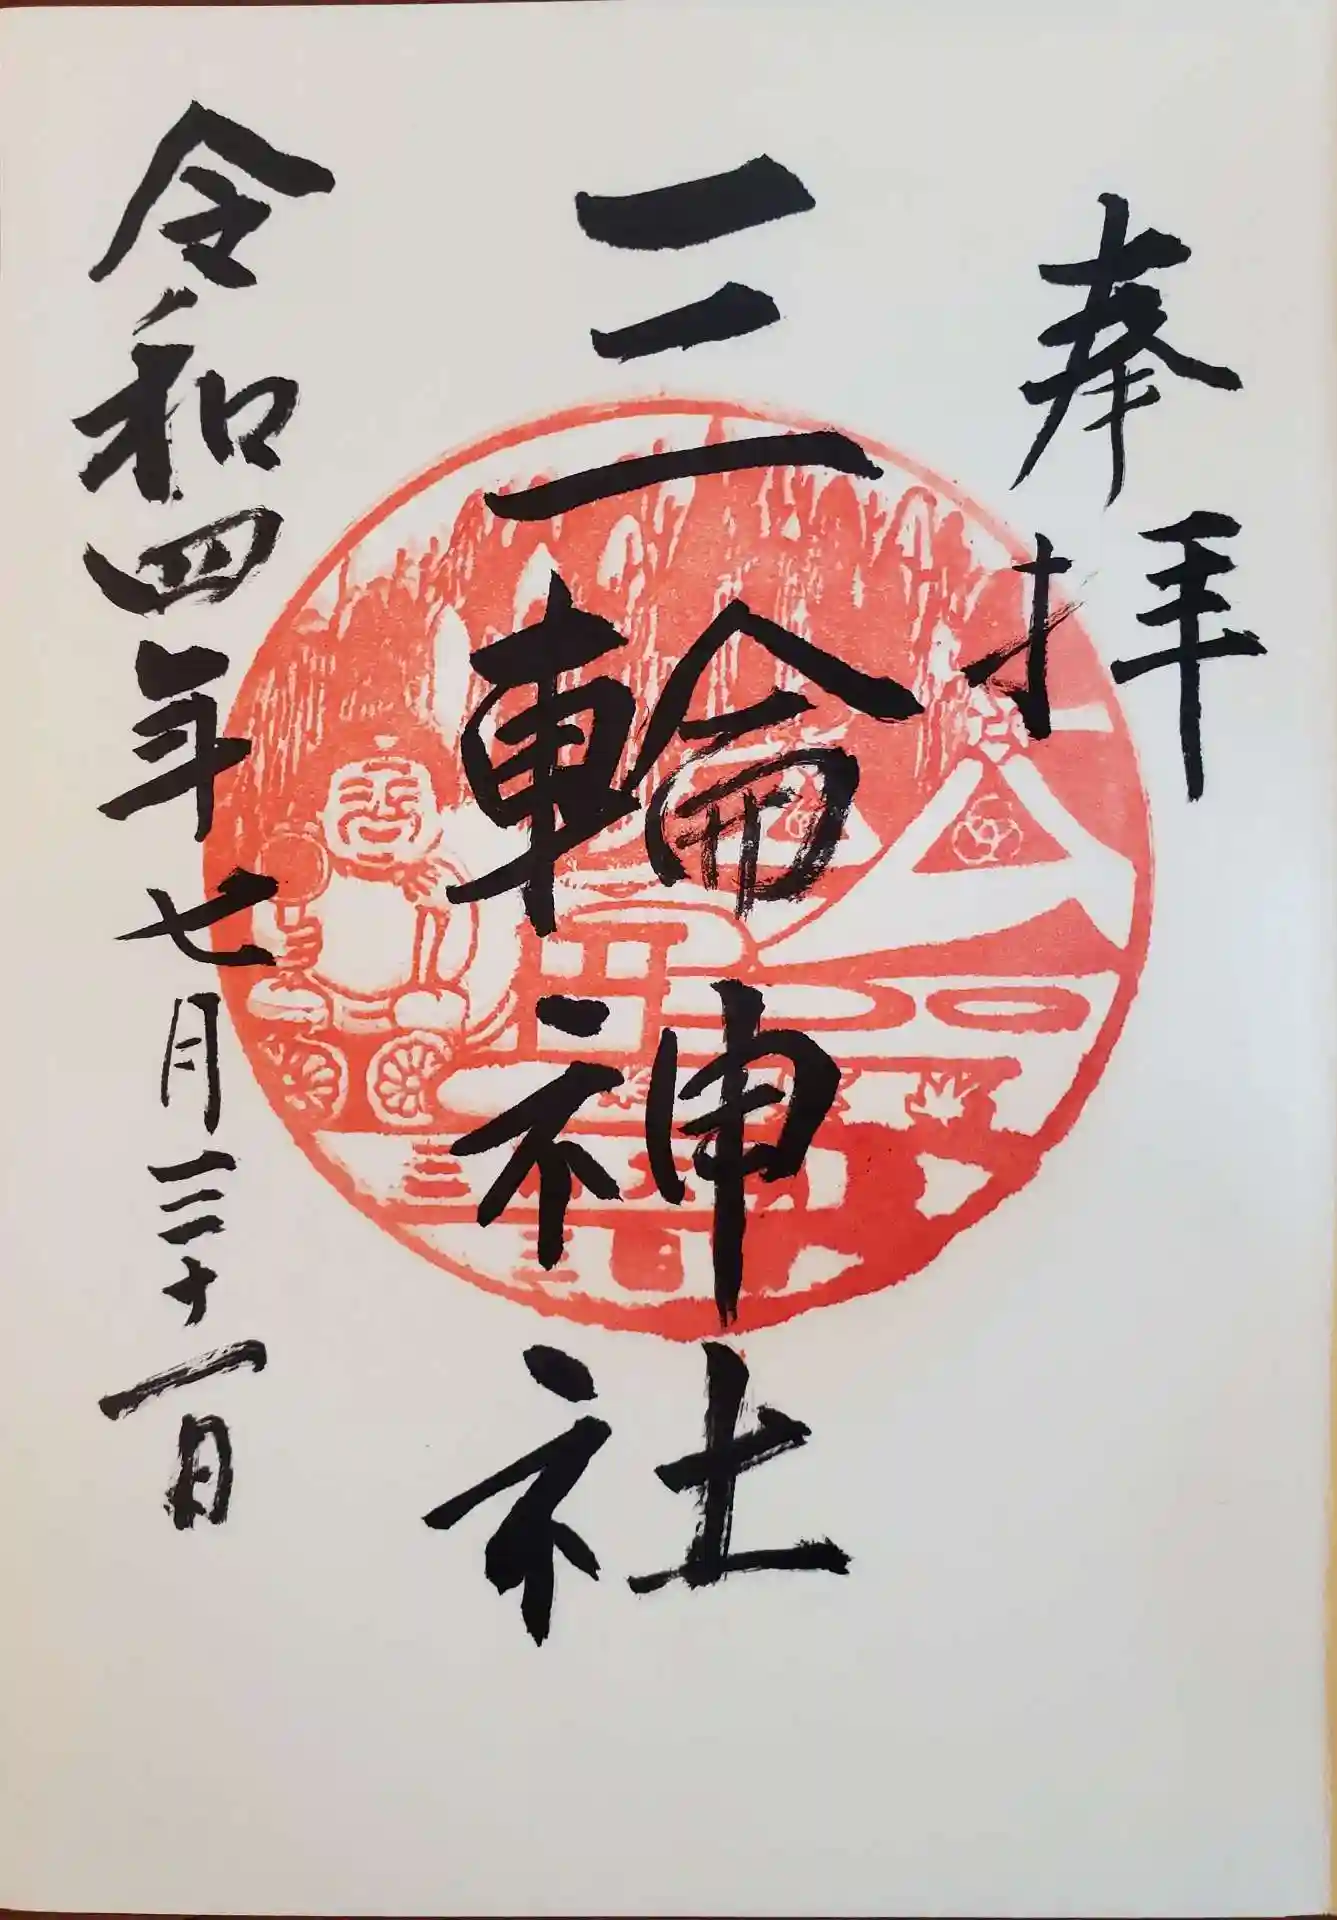 奉拝
三輪神社
令和四年七月三十一日